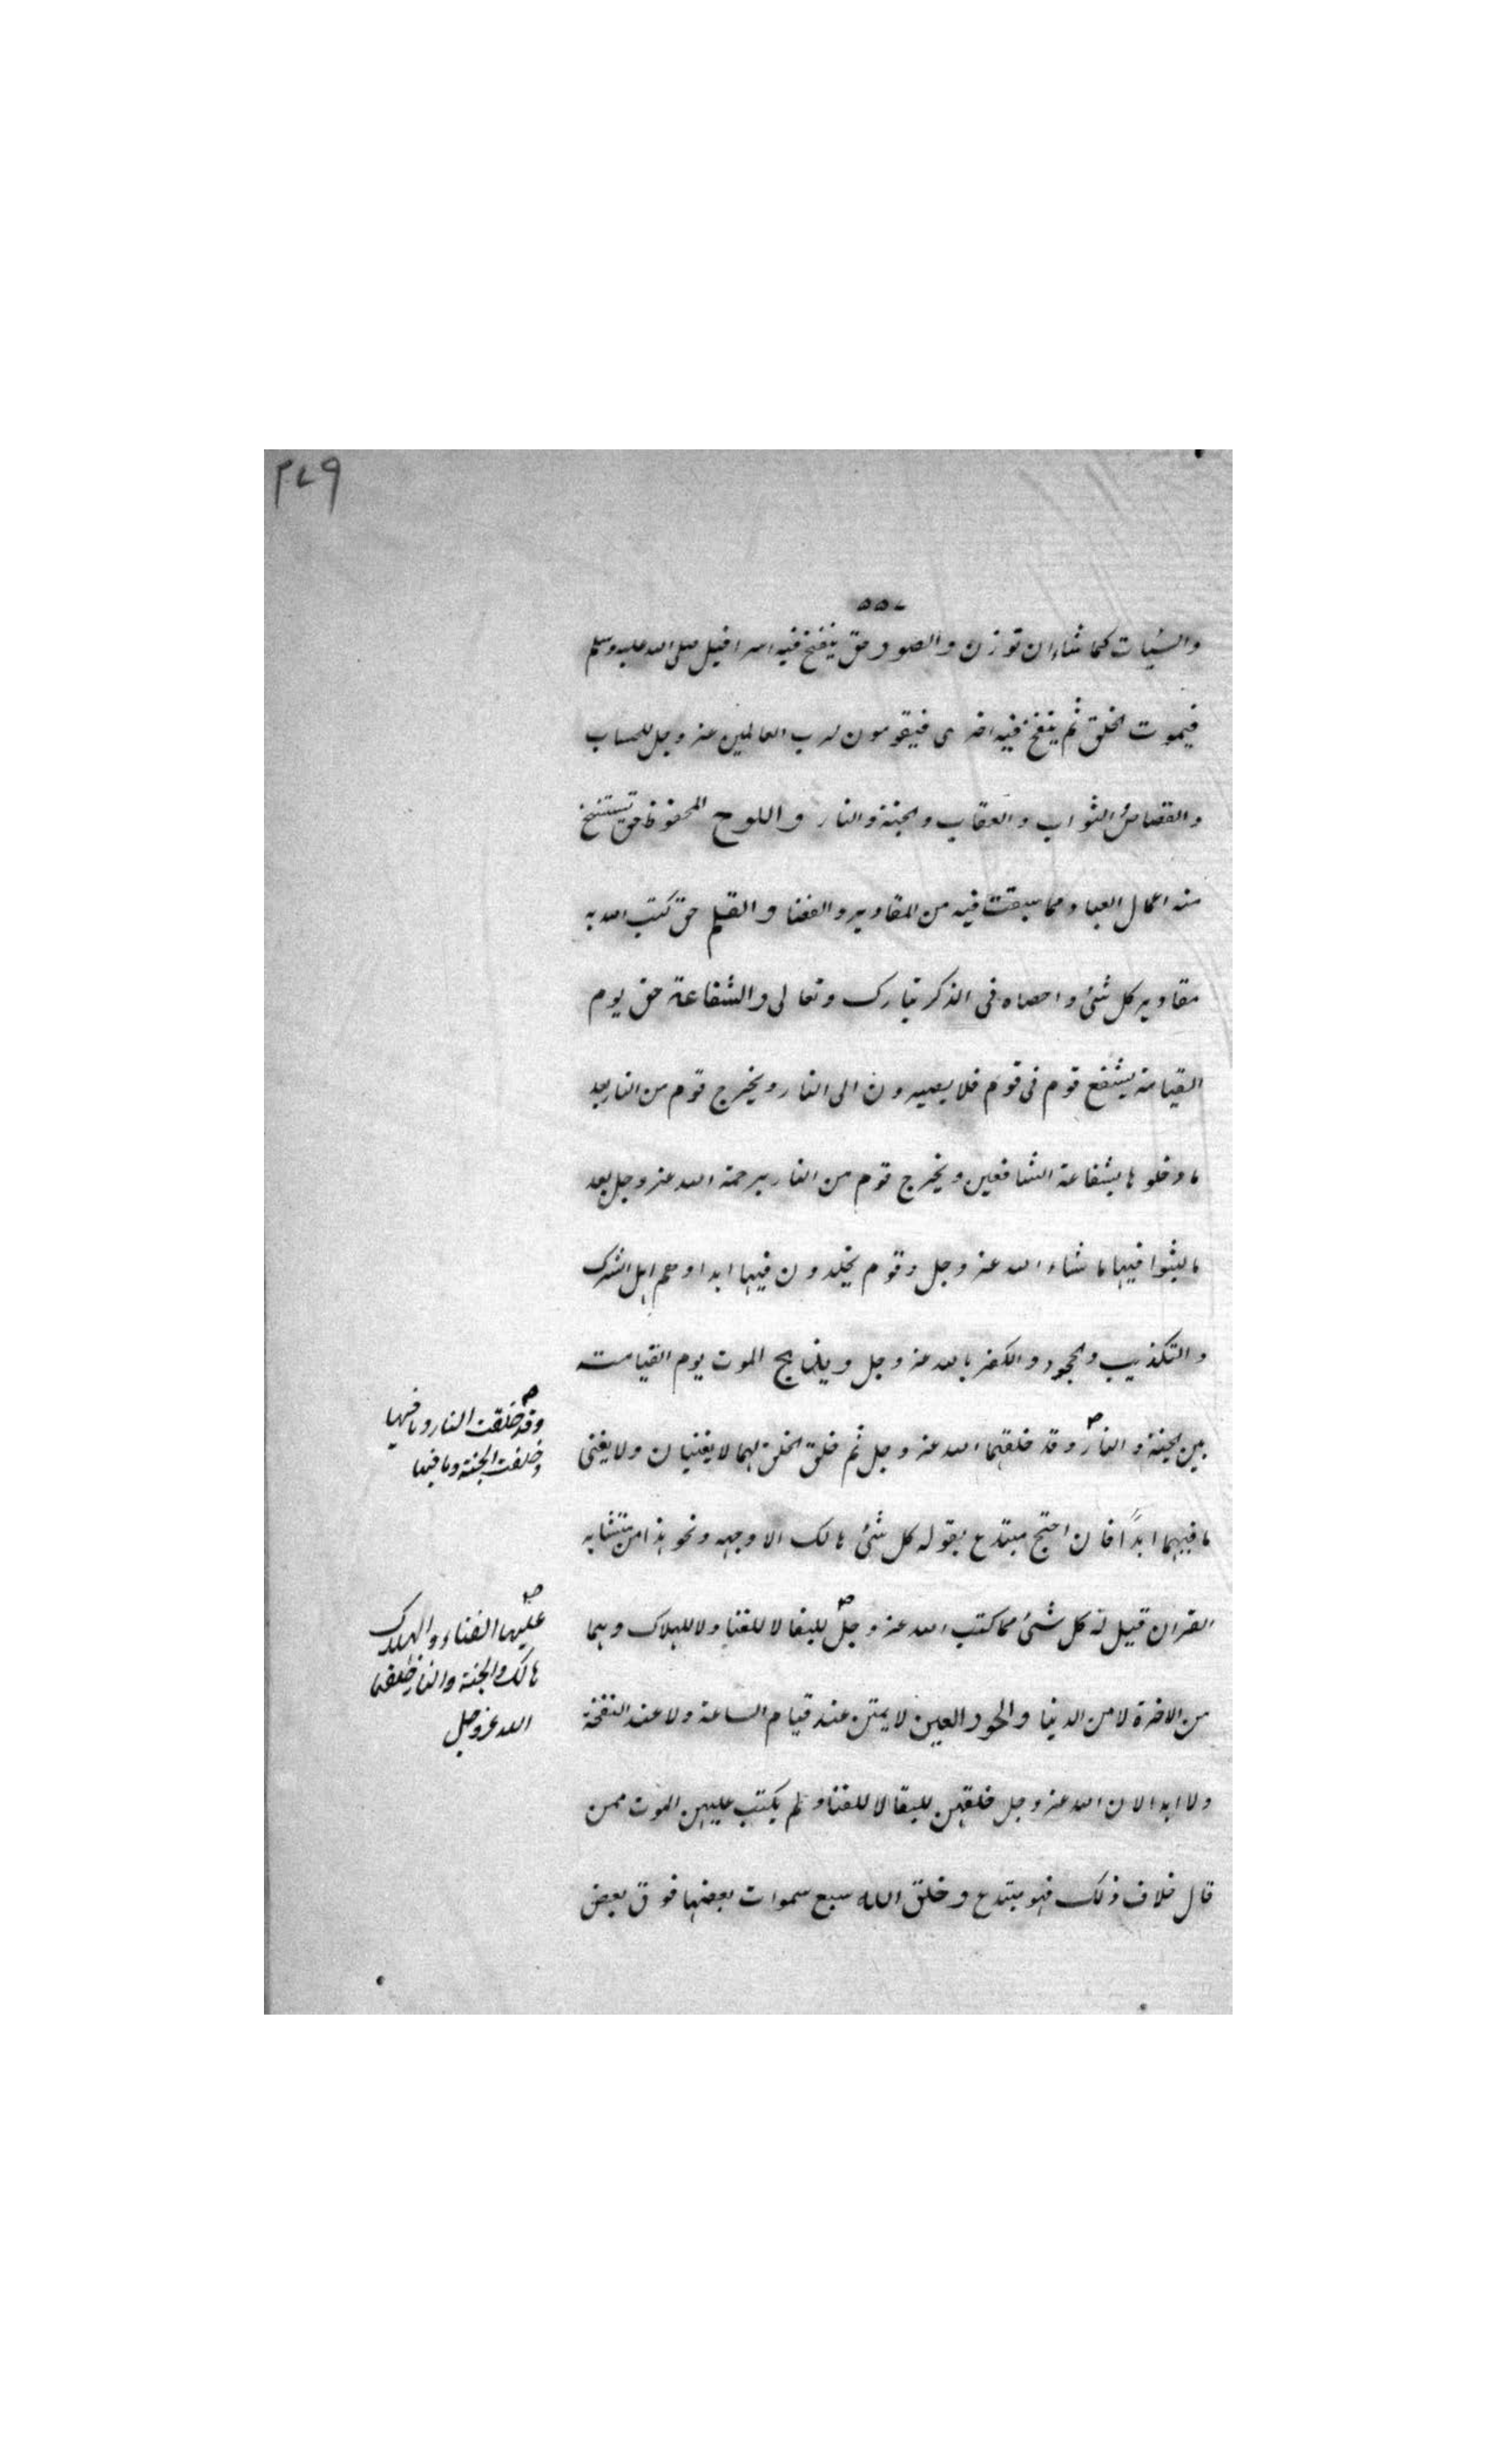 ٢٧٩
٥٥٧
والسيات كما شاء ان توزن والصور حق ينفخ فيه اسرافيل صلى الله عليه وسلم
فيموت الخلق ثم ينفخ فيه اخرى فيقومون لرب العالمين عز وجل للحساب
والقصاص الثواب والعقاب والجنة والنار واللوح المحفوظ حق تستنسخ
منه اعمال العباد مما سبقت فيه من المقادير والقضا والقلم حق كتب الله به
مقادير كل شئ واحصاه فى الذكر تبارك وتعالى والشفاعة حق يوم
القيامة يشفع قوم فى قوم فلا يصيرون الى النار ويخرج قوم من النار بعد
ما دخلوها بشفاعة الشافعين ويخرج قوم من النار برحمة الله عز وجل بعد
ما لبثوا فيها ما شاء الله عز وجل وقوم يخلدون فيها ابدا وهم اهل الشرك
والتكذيب والجحود والكفر بالله عز وجل ويذبح الموت يوم القيامة
بين الجنة والنار وقد خلقهما الله عز وجل ثم خلق الخلق لهما لا يفنيان ولا يفنى
وقد خلقت النار وما فيها
وخلقت الجنة وما فيها
ما فيهما ابدًا فان احتج مبتدع بقوله كل شئ هالك الا وجهه ونحو هذا من متشابه
القران قيل له كل شئ مما كتب الله عز وجل للبقا لا للفنا ولا للهلاك وهما
عليها الفناء والهلاك
هالك والجنة والنار خلقهما
الله عز وجل
من الاخرة لا من الدنيا والحور العين لا يمتن عند قيام الساعة ولا عند النفخة
ولا ابدا لان الله عز وجل خلقهن للبقا لا للفنا ولم يكتب عليهن الموت فمن
قال خلاف ذلك فهو مبتدع وخلق الله سبع سموات بعضها فوق بعض